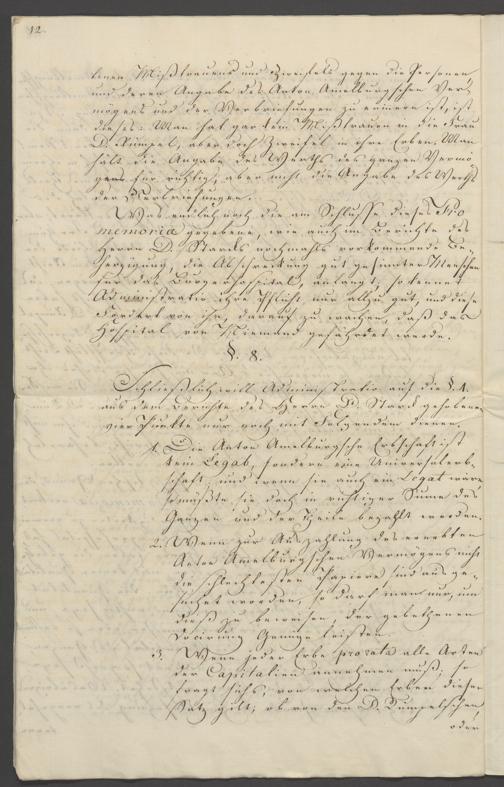 12.
tenen Mißtrauens und Zweifels gegen die Personen,
und deren Angabe des Anton Amelburgschen Ver-
mögens und der Verbriefungen zu erinnern ist, ist
dieses: Man hat gar kein Mißtrauen in die Frau
D. Kümpel, aber doch Zweifel in ihre Erben. Man
hält die Angabe des Werths des ganzen Vermö-
gens für richtig, aber nicht die Angabe des Werths
der Verbriefungen.
Was endlich noch die am Schlusse dieses Pro
memoria gegebene, wie auch im Berichte des
Herrn D. Starck nochmahls vorkommende Be-
herzigung, die Abschreckung gut gesinnter Menschen
für das Bürgerhospital, anlangt, so kennet
Administratio ihre Pflicht nur allzu gut, und diese
fordert von ihr, darauf zu wachen, daß das
Hospital von Niemand gefährdet werde.
§. 8.
Schließlich will Administratio auf die §. 1.
aus dem Berichte des Herrn D. Starck gehobene
vier Punkte nur noch mit Folgendem dienen.
1. Die Anton Amelburgsche Erbschaft ist
kein Legat, sondern eine Universalerb-
schaft, und wenn sie auch ein Legat wäre
so müßte sie doch in richtiger Summe des
Ganzen und der Theile bezahlt werden.
2. Wenn zur Auszahlung des ererbten
Anton Amelburgschen Vermögens nicht
die schlechtesten Papiere sind ausge-
suchet worden, so darf man nur, um
dieß zu beweisen, der gebethenen
Docirung Genüge leisten.
3. Wenn jeder Erbe pro rata alle Arten
der Capitalien annehmen muß; so
fragt sichs, von welchen Erben dieser
Satz gilt; ob von den D. Kümpelschen,
oder